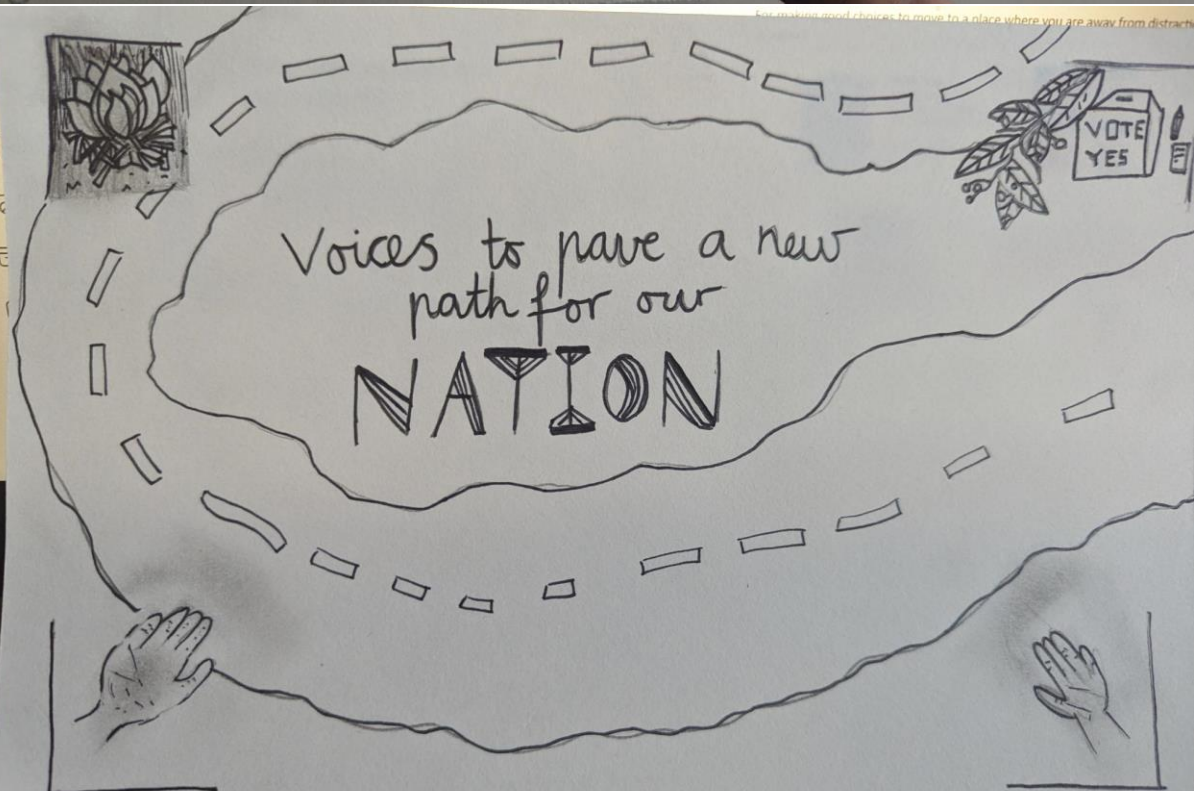 For making good choices to move to a place where you are away from distracti
VOTE
YES
Voices to pave a new
path for our
NATION